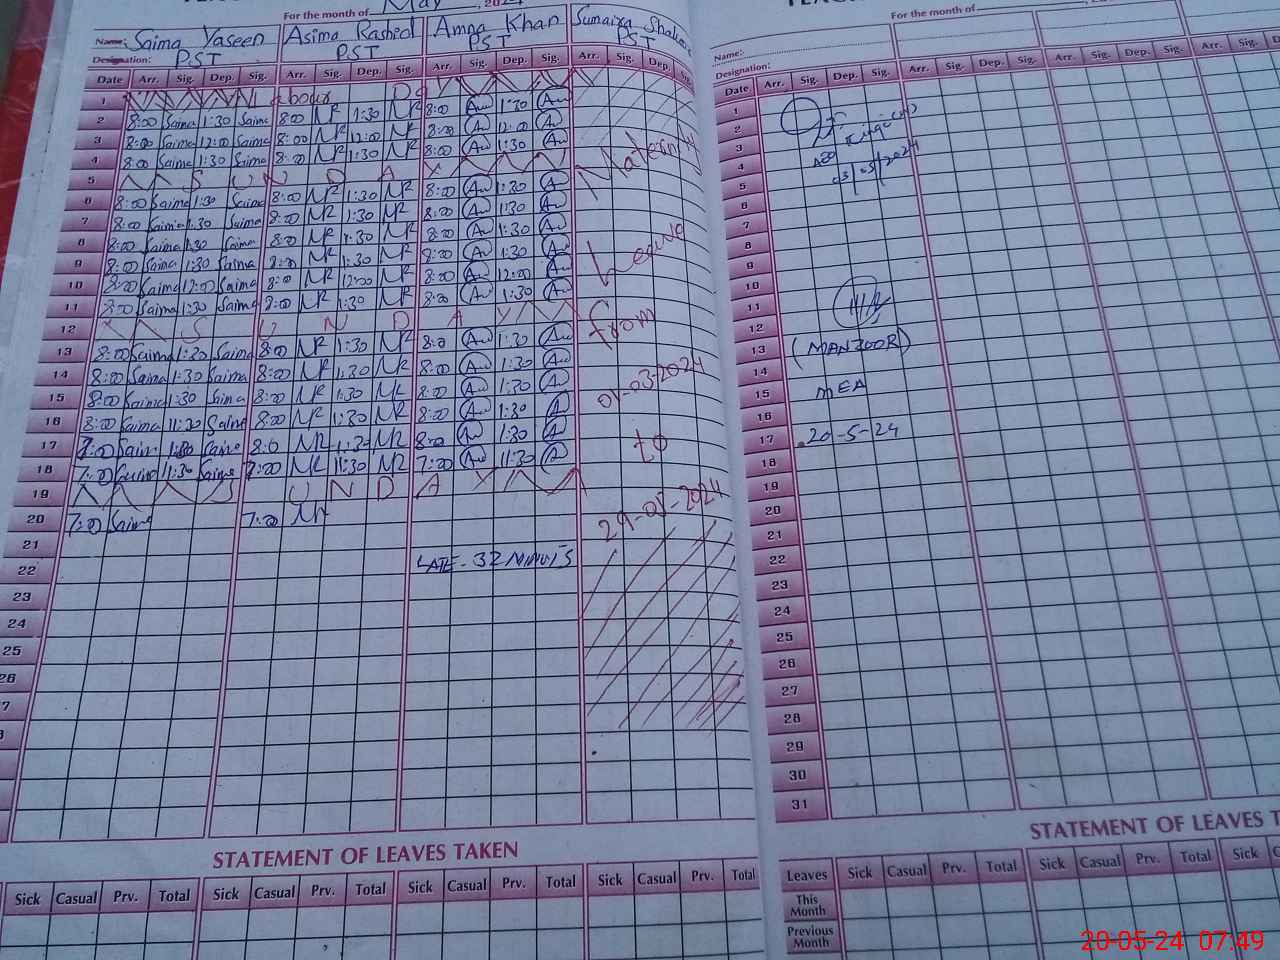 For the month of May, 202
Name: Saima Yaseen Asima Rashid Amna Khan Sumaira
Designation: PST PST PST PST
Date Arr. Sig. Dep. Sig. Arr. Sig. Dep. Sig. Arr. Sig. Dep. Sig. Arr. Sig. Dep. Sig.
1 Labour D
2 8:00 Saima 1:30 Saima 8:00 AR 1:30 AR 8:00 An 1:30 An
3 8:00 Saima 12:00 Saima 8:00 AR 12:00 AR 8:00 An 12:00 An
4 8:00 Saima 1:30 Saima 8:00 AR 1:30 AR 8:00 An 1:30 An
5 S U N D A Y
6 8:00 Saima 1:30 Saima 8:00 AR 1:30 AR 8:00 An 1:30 An
7 8:00 Saima 1:30 Saima 8:00 AR 1:30 AR 8:00 An 1:30 An
8 8:00 Saima 1:30 Saima 8:00 AR 1:30 AR 8:00 An 1:30 An
9 8:00 Saima 1:30 Saima 8:00 AR 1:30 AR 8:00 An 1:30 An
10 8:00 Saima 12:00 Saima 8:00 AR 12:00 AR 8:00 An 12:00 An
11 8:00 Saima 1:30 Saima 8:00 AR 1:30 AR 8:00 An 1:30 An
12 S U N D A Y
13 8:00 Saima 1:30 Saima 8:00 AR 1:30 AR 8:0 An 1:30 An
14 8:00 Saima 1:30 Saima 8:00 AR 1:30 AR 8:00 An 1:30 An
15 8:00 Saima 1:30 Saima 8:00 AR 1:30 AR 8:00 An 1:30 An
16 8:00 Saima 11:30 Saima 8:00 AR 1:30 AR 8:00 An 1:30 An
17 Saima Saima 8:0 AR 1:30 AR 8:00 An 1:30 An
18 7:00 Saima 11:30 Saima 7:00 AR 11:30 AR 7:00 An 11:30 An
19 S U N D A Y
20 7:00 Saima 7:00 AR
21
22 LATE - 32 MINUTS
23
24
25
26
7
Maternity
Leave
from
01-03-2024
to
29-05-2024
STATEMENT OF LEAVES TAKEN
Sick Casual Prv. Total Sick Casual Prv. Total Sick Casual Prv. Total Sick Casual Prv. Total
For the month of
Name:
Designation:
Date Arr. Sig. Dep. Sig. Arr. Sig. Dep. Sig. Arr. Sig. Dep. Sig. Arr. Sig.
1
2
3
4
5
6
7
8
9
10
11
12
13
14
15
16
17
18
19
20
21
22
23
24
25
26
27
28
29
30
31
AEO
03/05/2024
(MANZOOR)
MEA
20-5-24
STATEMENT OF LEAVES T
Leaves Sick Casual Prv. Total Sick Casual Prv. Total Sick
This Month
Previous Month
20-05-24 07:49